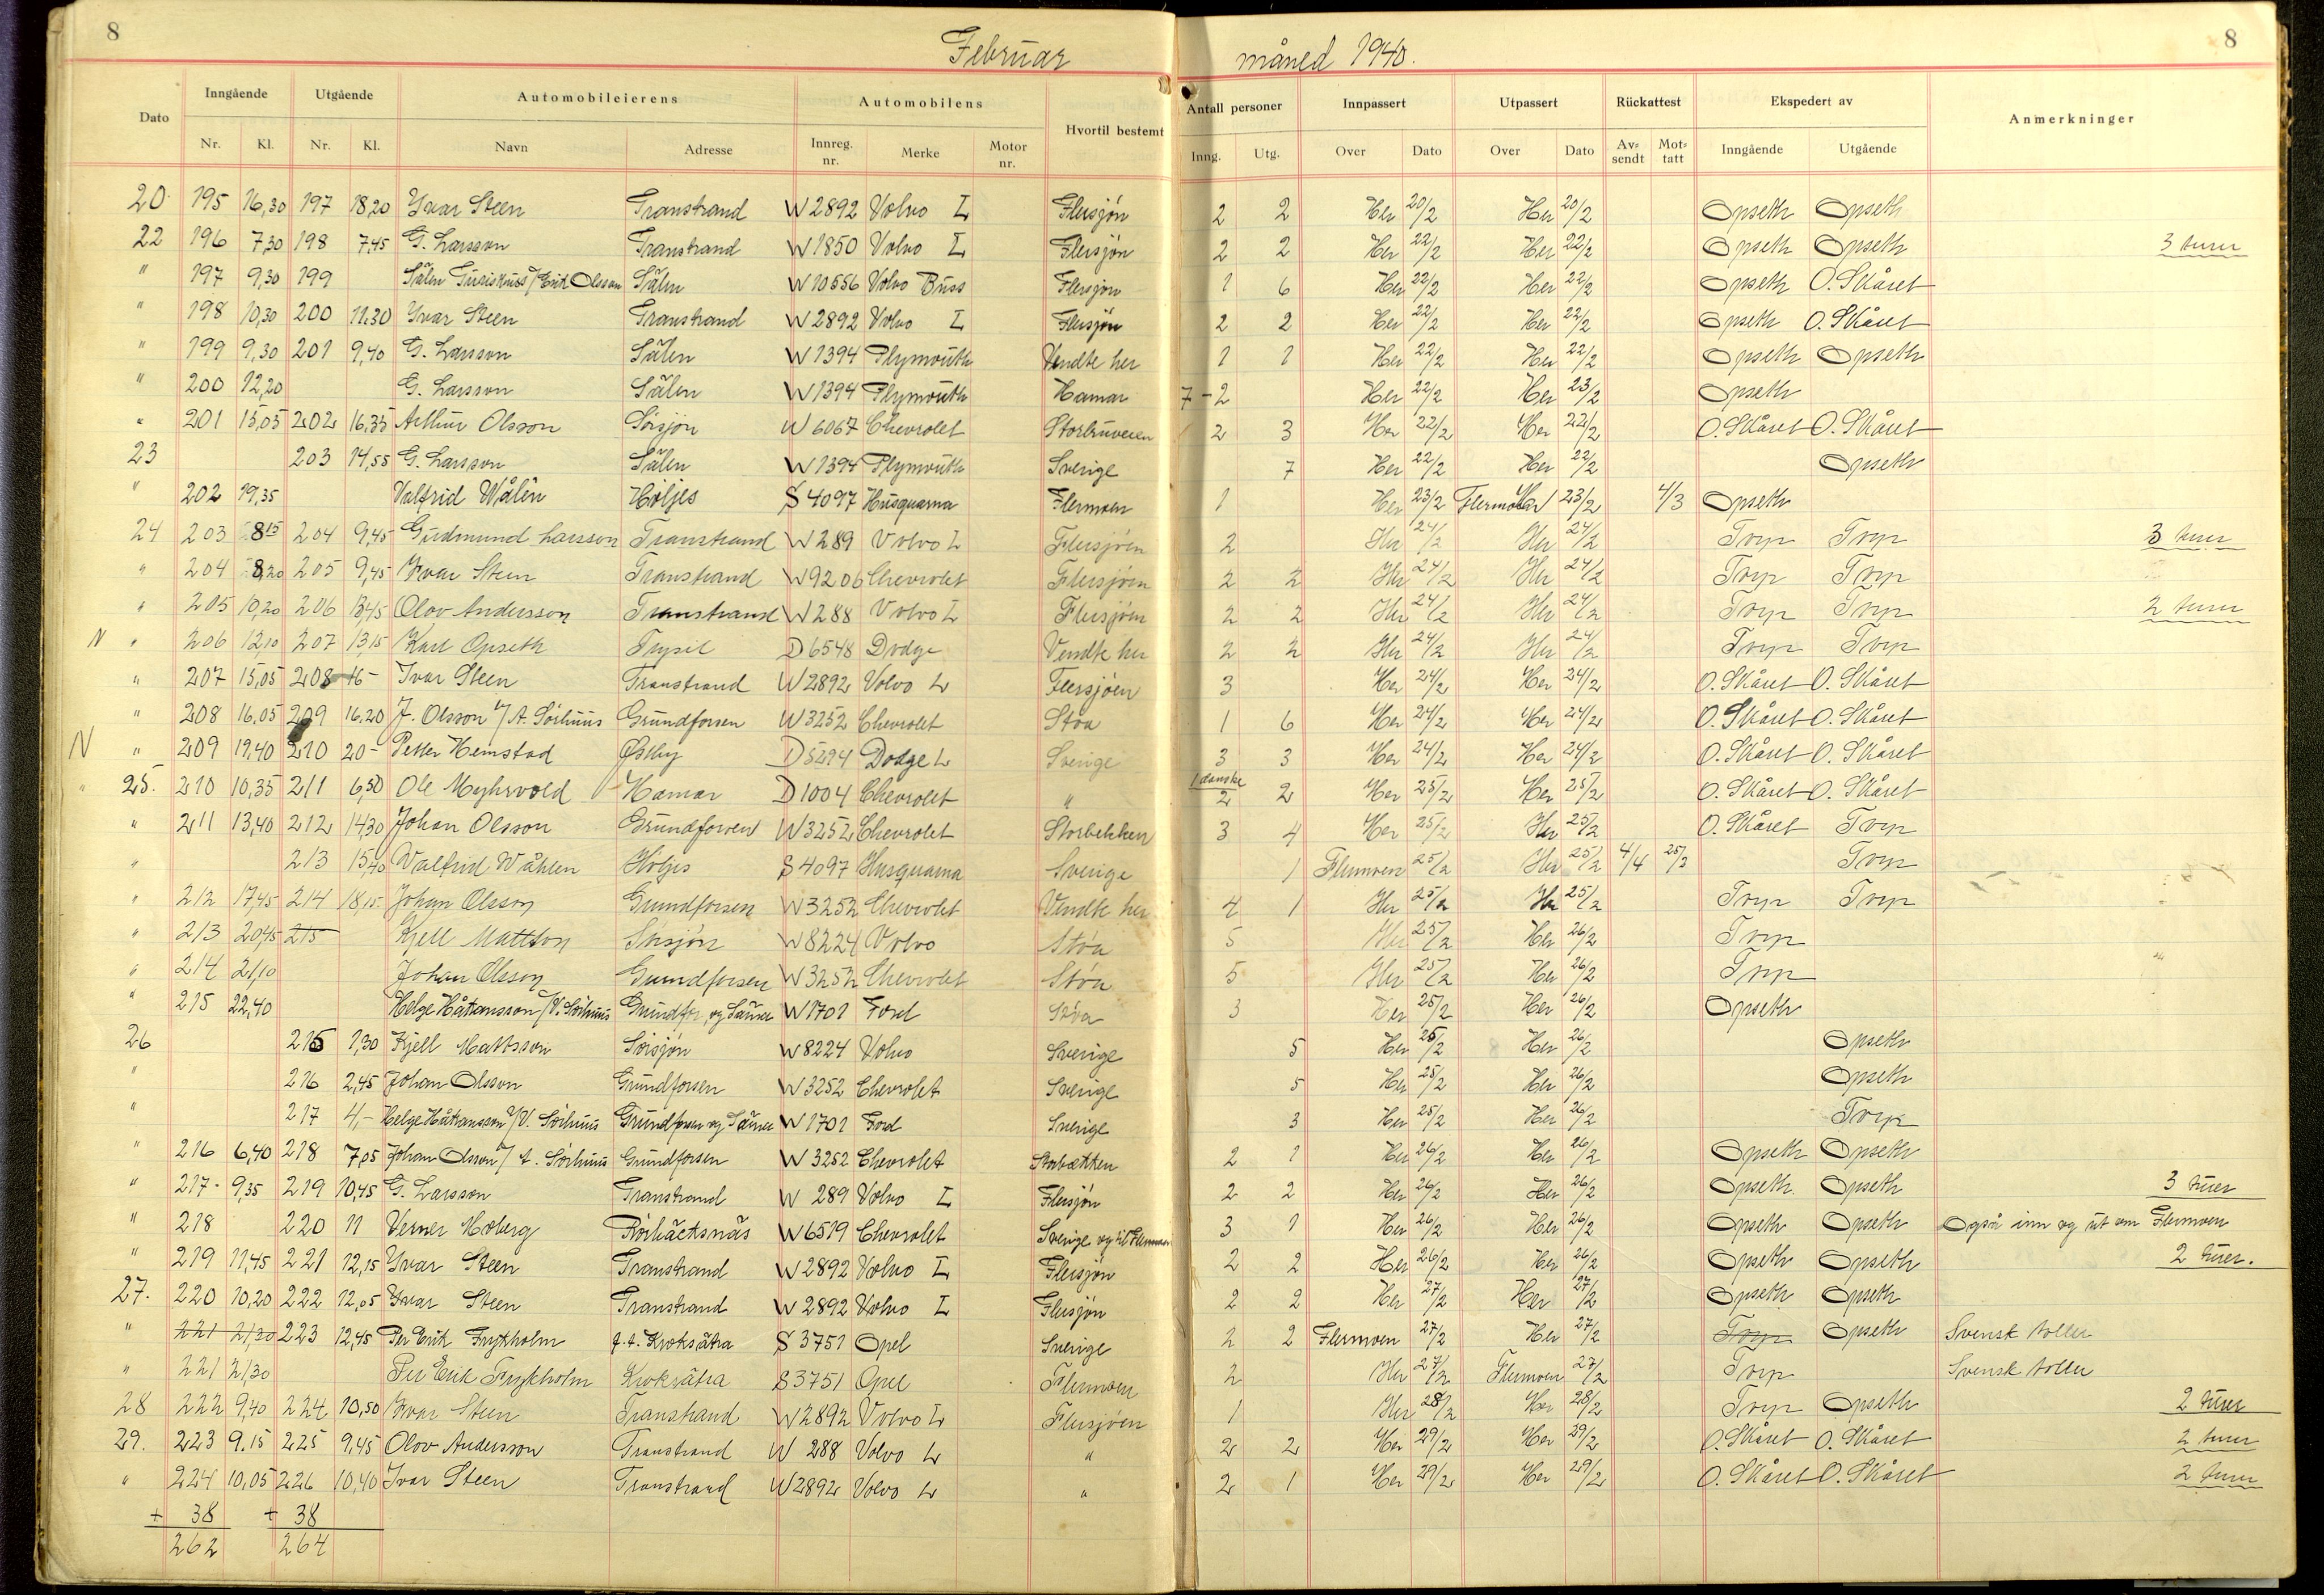 8
Februar
måned 1940.
8
Dato Inngående Utgående Automobileierens Automobilens Hvortil bestemt Antall personer Innpassert Utpassert Rückattest Ekspedert av Anmerkninger
Nr. Kl. Nr. Kl. Navn Adresse Innreg. nr. Merke Motor nr. Inng. Utg. Over Dato Over Dato Av=sendt Mot=tatt Inngående Utgående
20 195 16,30 197 18,20 Yvar Steen Transtrand W 2892 Volvo L Flersjön 2 2 Her 20/2 Her 20/2 Opseth Opseth
22 196 7,30 198 7,45 G. Larsson Transtrand W 1850 Volvo L Flersjön 2 2 Her 22/2 Her 22/2 Opseth Opseth 3 turer
" 197 9,30 199 Sälen Turistbuss / Erik Olsson Sälen W 10556 Volvo Buss Flersjön 1 6 Her 22/2 Her 22/2 Opseth O. Skåret
" 198 10,30 200 11.30 Yvar Steen Transtrand W 2892 Volvo L Flersjön 2 2 Her 22/2 Her 22/2 Opseth O. Skåret
" 199 9,30 201 9,40 G. Larsson Sälen W 1394 Plymouth Vendte her 1 1 Her 22/2 Her 22/2 Opseth Opseth
" 200 12,20 G. Larsson Sälen W 1394 Plymouth Hamar 7-2 Her 22/2 Her 23/2 Opseth
" 201 15,05 202 16,35 Arthur Olsson Sörsjön W 6067 Chevrolet 2 3 Her 22/2 Her 22/2 O. Skåret O. Skåret
23 203 14,55 G. Larsson Sälen W 1394 Plymouth Sverige 7 Her 22/2 Her 22/2 Opseth
" 202 19,35 Valfrid Wålén Höljes S 4097 Husquarna Flermoen 1 Her 23/2 Flermoen 23/2 4/3 Opseth
24 203 8 15 204 9,45 Gudmund Larsson Transtrand W 289 Volvo L Flersjöen 2 Her 24/2 Her 24/2 Torp Torp 3 turer
" 204 8,20 205 9,45 Ivar Steen Transtrand W 9206 Chevrolet Flersjöen 2 2 Her 24/2 Her 24/2 Torp Torp
" 205 10,20 206 13,45 Olov Andersson Transtrand W 288 Volvo L Flersjöen 2 2 Her 24/2 Her 24/2 Torp Torp 2 turer
N " 206 12,10 207 13,15 Karl Opseth Trysil D 6548 Dodge Vendte her 2 2 Her 24/2 Her 24/2 Torp Torp
" 207 15,05 208 16- Ivar Steen Transtrand W 2892 Volvo L Flersjöen 3 Her 24/2 Her 24/2 O. Skåret O. Skåret
" 208 16,05 209 16,20 J. Olsson v/ A. Sörhuus Grundforsen W 3252 Chevrolet Stöa 1 6 Her 24/2 Her 24/2 O. Skåret O. Skåret
N " 209 19,40 210 20- Petter Heimstad Østby D 5294 Dodge L Sverige 3 3 Her 24/2 Her 24/2 O. Skåret O. Skåret
" 25. 210 10,35 211 6,50 Ole Myhrvold Hamar D 1004 Chevrolet " 1 danske 2 2 Her 25/2 Her 25/2 O. Skåret O. Skåret
" 211 13,40 212 14,30 Johan Olsson Grundforsen W 3252 Chevrolet Storbekken 3 4 Her 25/2 Her 25/2 O. Skåret Torp
" 213 15,40 Walfrid Wåhlen Höljes S 4097 Husquarna Sverige 1 Flermoen 25/2 Her 25/2 4/4 25/2 Torp
" 212 17,45 214 18,15 Johan Olsson Grundforsen W 3252 Chevrolet Vendte her 4 1 Her 25/2 Her 25/2 Torp Torp
" 213 20,45 215 Kjell Mattson Sörsjön W 8224 Volvo Stöa 5 Her 25/2 Her 26/2 Torp
" 214 21,10 Johan Olsson Grundforsen W 3252 Chevrolet Stöa 5 Her 25/2 Her 26/2 Torp
" 215 22,40 Helge Håkansson / V. Sörhuus Grundfor. og Särna W 1701 Ford Stöa 3 Her 25/2 Her 26/2 Opseth
26 215 1,30 Kjell Mattsson Sörsjön W 8224 Volvo Sverige 5 Her 25/2 Her 26/2 Opseth
" 216 2,45 Johan Olsson Grundforsen W 3252 Chevrolet Sverige 5 Her 25/2 Her 26/2 Opseth
" 217 4,- Helge Håkansson v/ V. Sörhuus Grundforsen og Särna W 1701 Ford Sverige 3 Her 25/2 Her 26/2 Torp
" 216 6,40 218 7,05 Johan Olsson v/ A. Sörhuus Grundforsen W 3252 Chevrolet Storbækken 2 1 Her 26/2 Her 26/2 Opseth Opseth
" 217- 9,35 219 10,45 G. Larsson Transtrand W 289 Volvo L Flersjön 2 2 Her 26/2 Her 26/2 Opseth Opseth 3 turer
" 218 220 11 Verner Moberg Rörbäcksnäs W 6519 Chevrolet Sverige og til Flermoen 3 1 Her 26/2 Her 26/2 Opseth Opseth Også inn og ut om Flermoen
" 219 11,45 221 12,15 Yvar Steen Transtrand W 2892 Volvo L Flersjön 2 2 Her 26/2 Her 26/2 Opseth Opseth 2 turer.
27. 220 10,20 222 12,05 Yvar Steen Transtrand W 2892 Volvo L Flersjön 2 2 Her 27/2 Her 27/2 Opseth Opseth
" 221 21,30 223 12,45 Per Erik Frykholm Kroksätra S 3751 Opel Sverige 2 2 Flermoen 27/2 Her 27/2 Torp Opseth Svensk toller
" 221 21,30 Per Erik Frykholm Kroksätra S 3751 Opel Flermoen 2 Her 27/2 Flermoen 27/2 Torp Svensk toller
28 222 9,40 224 10,50 Ivar Steen Transtrand W 2892 Volvo L Flersjöen 1 Her 28/2 Her 28/2 Torp Opseth 2 turer
29. 223 9.15 225 9,45 Olov Andersson Transtrand W 288 Volvo L " 2 2 Her 29/2 Her 29/2 O. Skåret O. Skåret 2 turer
" 224 10,05 226 10,40 Ivar Steen Transtrand W 2892 Volvo L " 2 1 Her 29/2 Her 29/2 O. Skåret O. Skåret 2 turer
+ 38 + 38
262 264